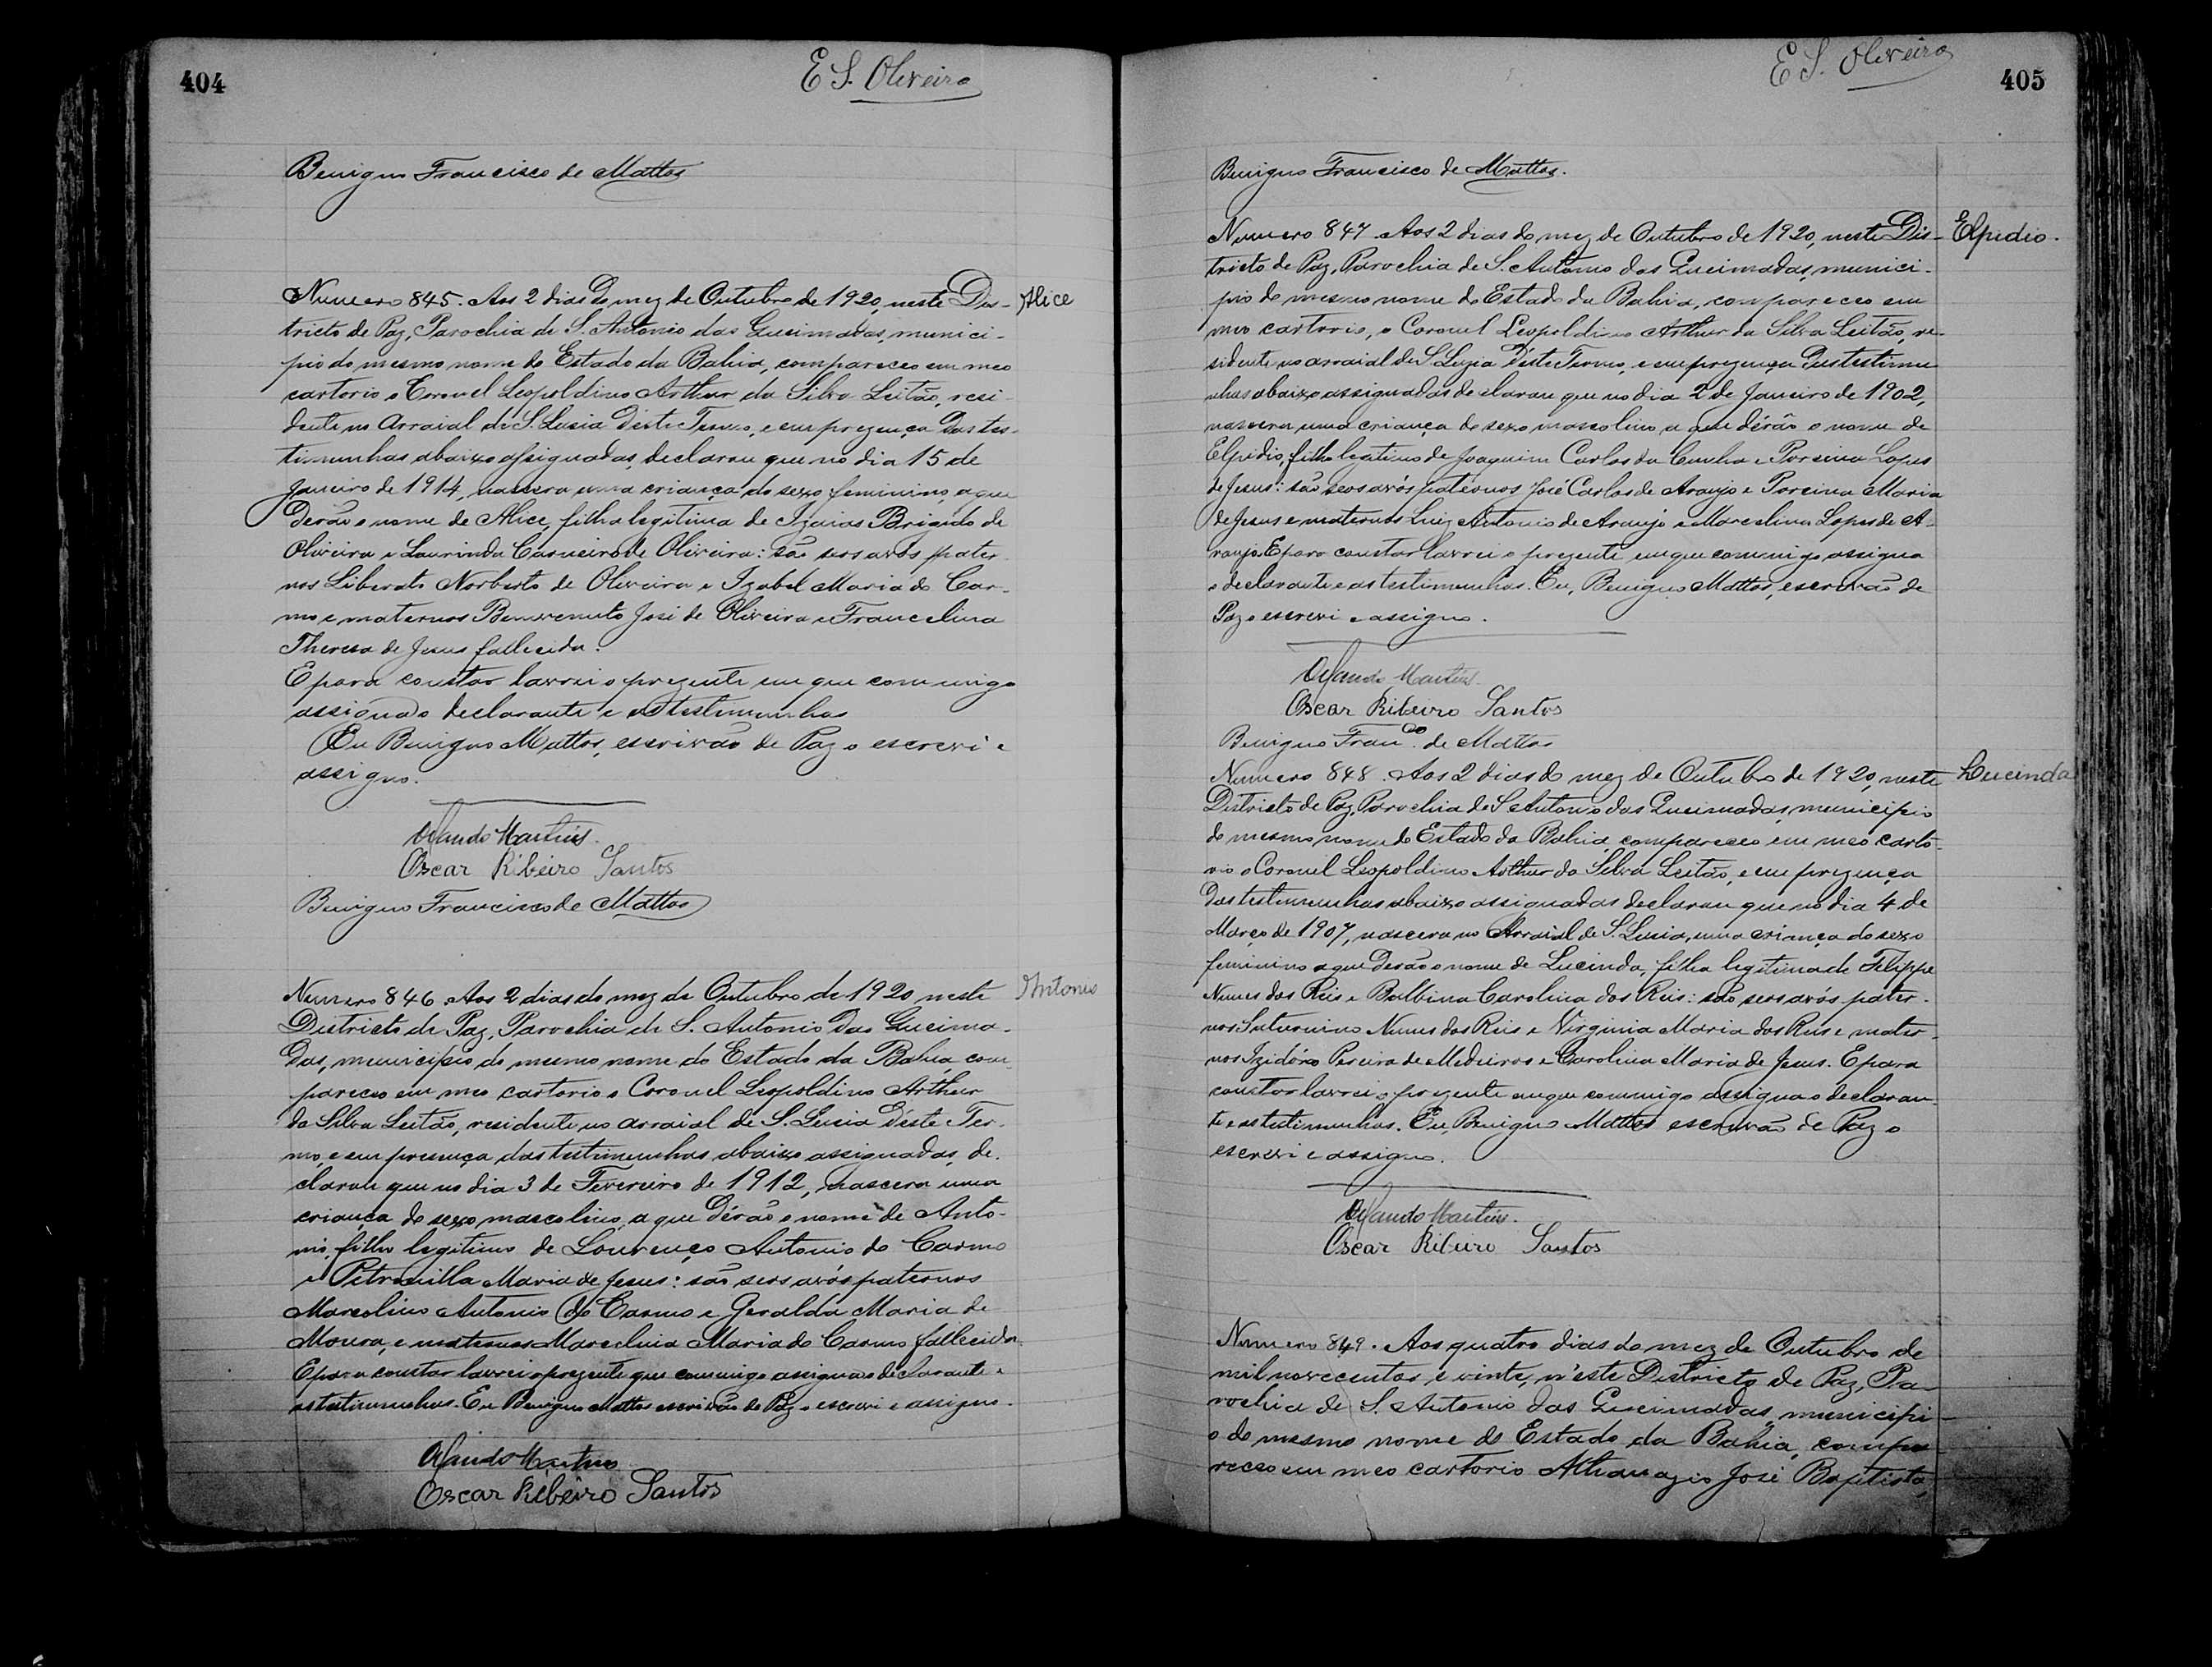 404
E S. Oliveira
Benigno Francisco de Mattos
Numero 845. Aos 2 dias do mez de Outubro de 1920, neste Dis-
Alice
tricto de Paz, Parochia de S. Antonio das Queimadas, munici-
pio do mesmo nome do Estado da Bahia, compareceo em meo
cartorio o Coronel Leopoldino Arthur da Silva Leitão, resi-
dente no Arraial de S. Lusia d'este Termo, e em prezença das tes-
timunhas abaixo assignadas, declarou que no dia 15 de
Janeiro de 1914, nascera uma criança do sexo feminino, a que
derão o nome de Alice, filha legitima de Izaias Brigido de
Oliveira e Laurinda Carneiro de Oliveira: são seos avós pater-
nos Liberato Norberto de Oliveira e Izabel Maria do Car-
mo e maternos Benvenuto José de Oliveira e Francelina
Thereza de Jesus fallecida.
E para constar lavrei o prezente em que commigo
assigna o declarante e as testimunhas
Eu Benigno Mattos, escrivão de Paz o escrevi e
assigno.
Orlando Martins.
Oscar Ribeiro Santos
Benigno Francisco de Mattos
Numero 846. Aos 2 dias do mez de Outubro de 1920 neste
Antonio
Districto de Paz, Parochia de S. Antonio das Queima-
das, municipio do mesmo nome do Estado da Bahia, com-
pareceo em meo cartorio o Coronel Leopoldino Arthur
da Silva Leitão, residente no arraial de S. Lusia d'este Ter-
mo, e em presença das testimunhas abaixo assignadas, de-
clarou que no dia 3 de Fevereiro de 1912, nascera uma
criança do sexo mascolino, a que dérão o nome de Anto-
nio, filho legitimo de Lourenço Antonio do Carmo
e Petronilla Maria de Jesus: são seos avós paternos
Marcolino Antonio do Carmo e Geralda Maria de
Moura, e maternos Marcelina Maria do Carmo fallecida
E para constar lavrei o prezente que commigo assigna o declarante e
as testimunhas. Eu Benigno Mattos escrivão de Paz o escrevi e assigno.
Orlando Martins
Oscar Ribeiro Santos
E S. Oliveira
405
Benigno Francisco de Mattos.
Numero 847. Aos 2 dias do mez de Outubro de 1920, neste Dis-
Elpidio.
tricto de Paz, Parochia de S. Antonio das Queimadas, munici-
pio do mesmo nome do Estado da Bahia, compareceo em
meo cartorio, o Coronel Leopoldino Arthur da Silva Leitão, re-
sidente no arraial de S. Luzia d'este Termo, e em prezença das testimu-
nhas abaixo assignadas declarou que no dia 2 de Janeiro de 1902,
nascera uma criança do sexo mascolino a que dérão o nome de
Elpidio, filho legitimo de Joaquim Carlos da Cunha e Porcina Lopes
de Jesus: são seos avós paternos José Carlos de Araujo e Porcina Maria
de Jesus e maternos Luiz Antonio de Araujo e Marcelina Lopes de A-
raujo. E para constar lavrei o prezente em que commigo assigna
o declarante e as testimunhas. Eu, Benigno Mattos, escrivão de
Paz o escrevi e assigno.
Orlando Martins.
Oscar Ribeiro Santos
Benigno Franco. de Mattos
Numero 848. Aos 2 dias do mez de Outubro de 1920, neste
Lucinda
Districto de Paz, Parochia de S. Antonio das Queimadas, municipio
do mesmo nome do Estado da Bahia, compareceo em meo carto-
rio o Coronel Leopoldino Arthur da Silva Leitão, e em prezença
das testimunhas abaixo assignadas declarou que no dia 4 de
Março de 1907, nascera no Arraial de S. Lusia, uma criança do sexo
feminino a que derão o nome de Lucinda, filha legitima de Filippe
Nunes dos Reis e Balbina Carolina dos Reis: são seos avós pater-
nos Saturnino Nunes dos Reis e Virginia Maria dos Reis e mater-
nos Izidóro Pereira de Medeiros e Carolina Maria de Jesus. E para
constar lavrei o prezente em que commigo assigna o declaran-
te e as testimunhas. Eu, Benigno Mattos escrivão de Paz o
escrevi e assigno.
Orlando Martins.
Oscar Ribeiro Santos
Numero 849. Aos quatro dias do mez de Outubro de
mil novecentos e vinte, n'este Districto de Paz, Pa-
rochia de S. Antonio das Queimadas, municipi-
o do mesmo nome do Estado da Bahia, compa-
receo em meo cartorio Athanazio José Baptista,